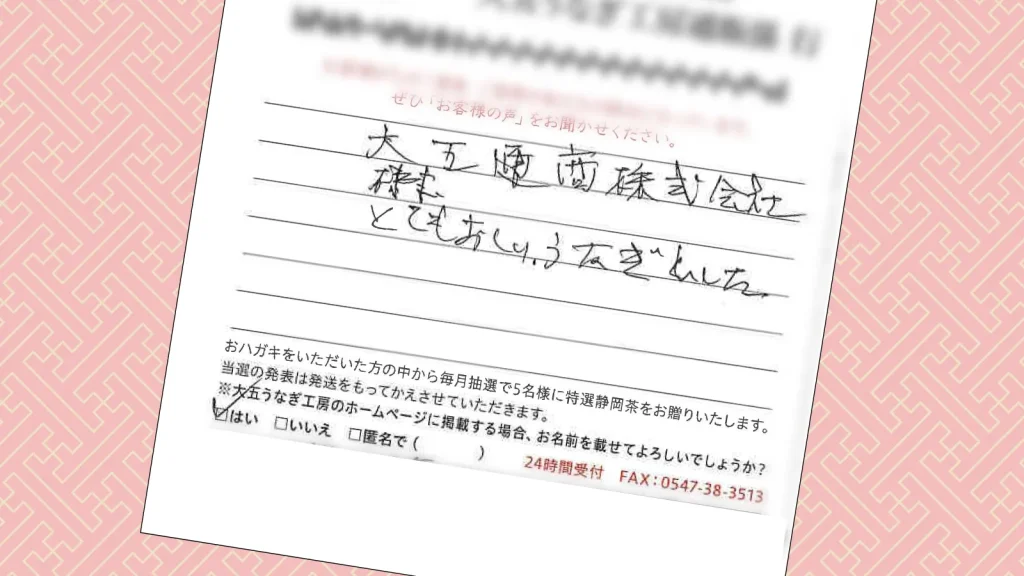 大五うなぎ工房通販部 行
ぜひ「お客様の声」をお聞かせください。
大五通商株式会社
様
とてもおいしいうなぎでした。
おハガキをいただいた方の中から毎月抽選で5名様に特選静岡茶をお贈りいたします。
当選の発表は発送をもってかえさせていただきます。
※大五うなぎ工房のホームページに掲載する場合、お名前を載せてよろしいでしょうか?
☑はい □いいえ □匿名で( )
24時間受付 FAX:0547-38-3513